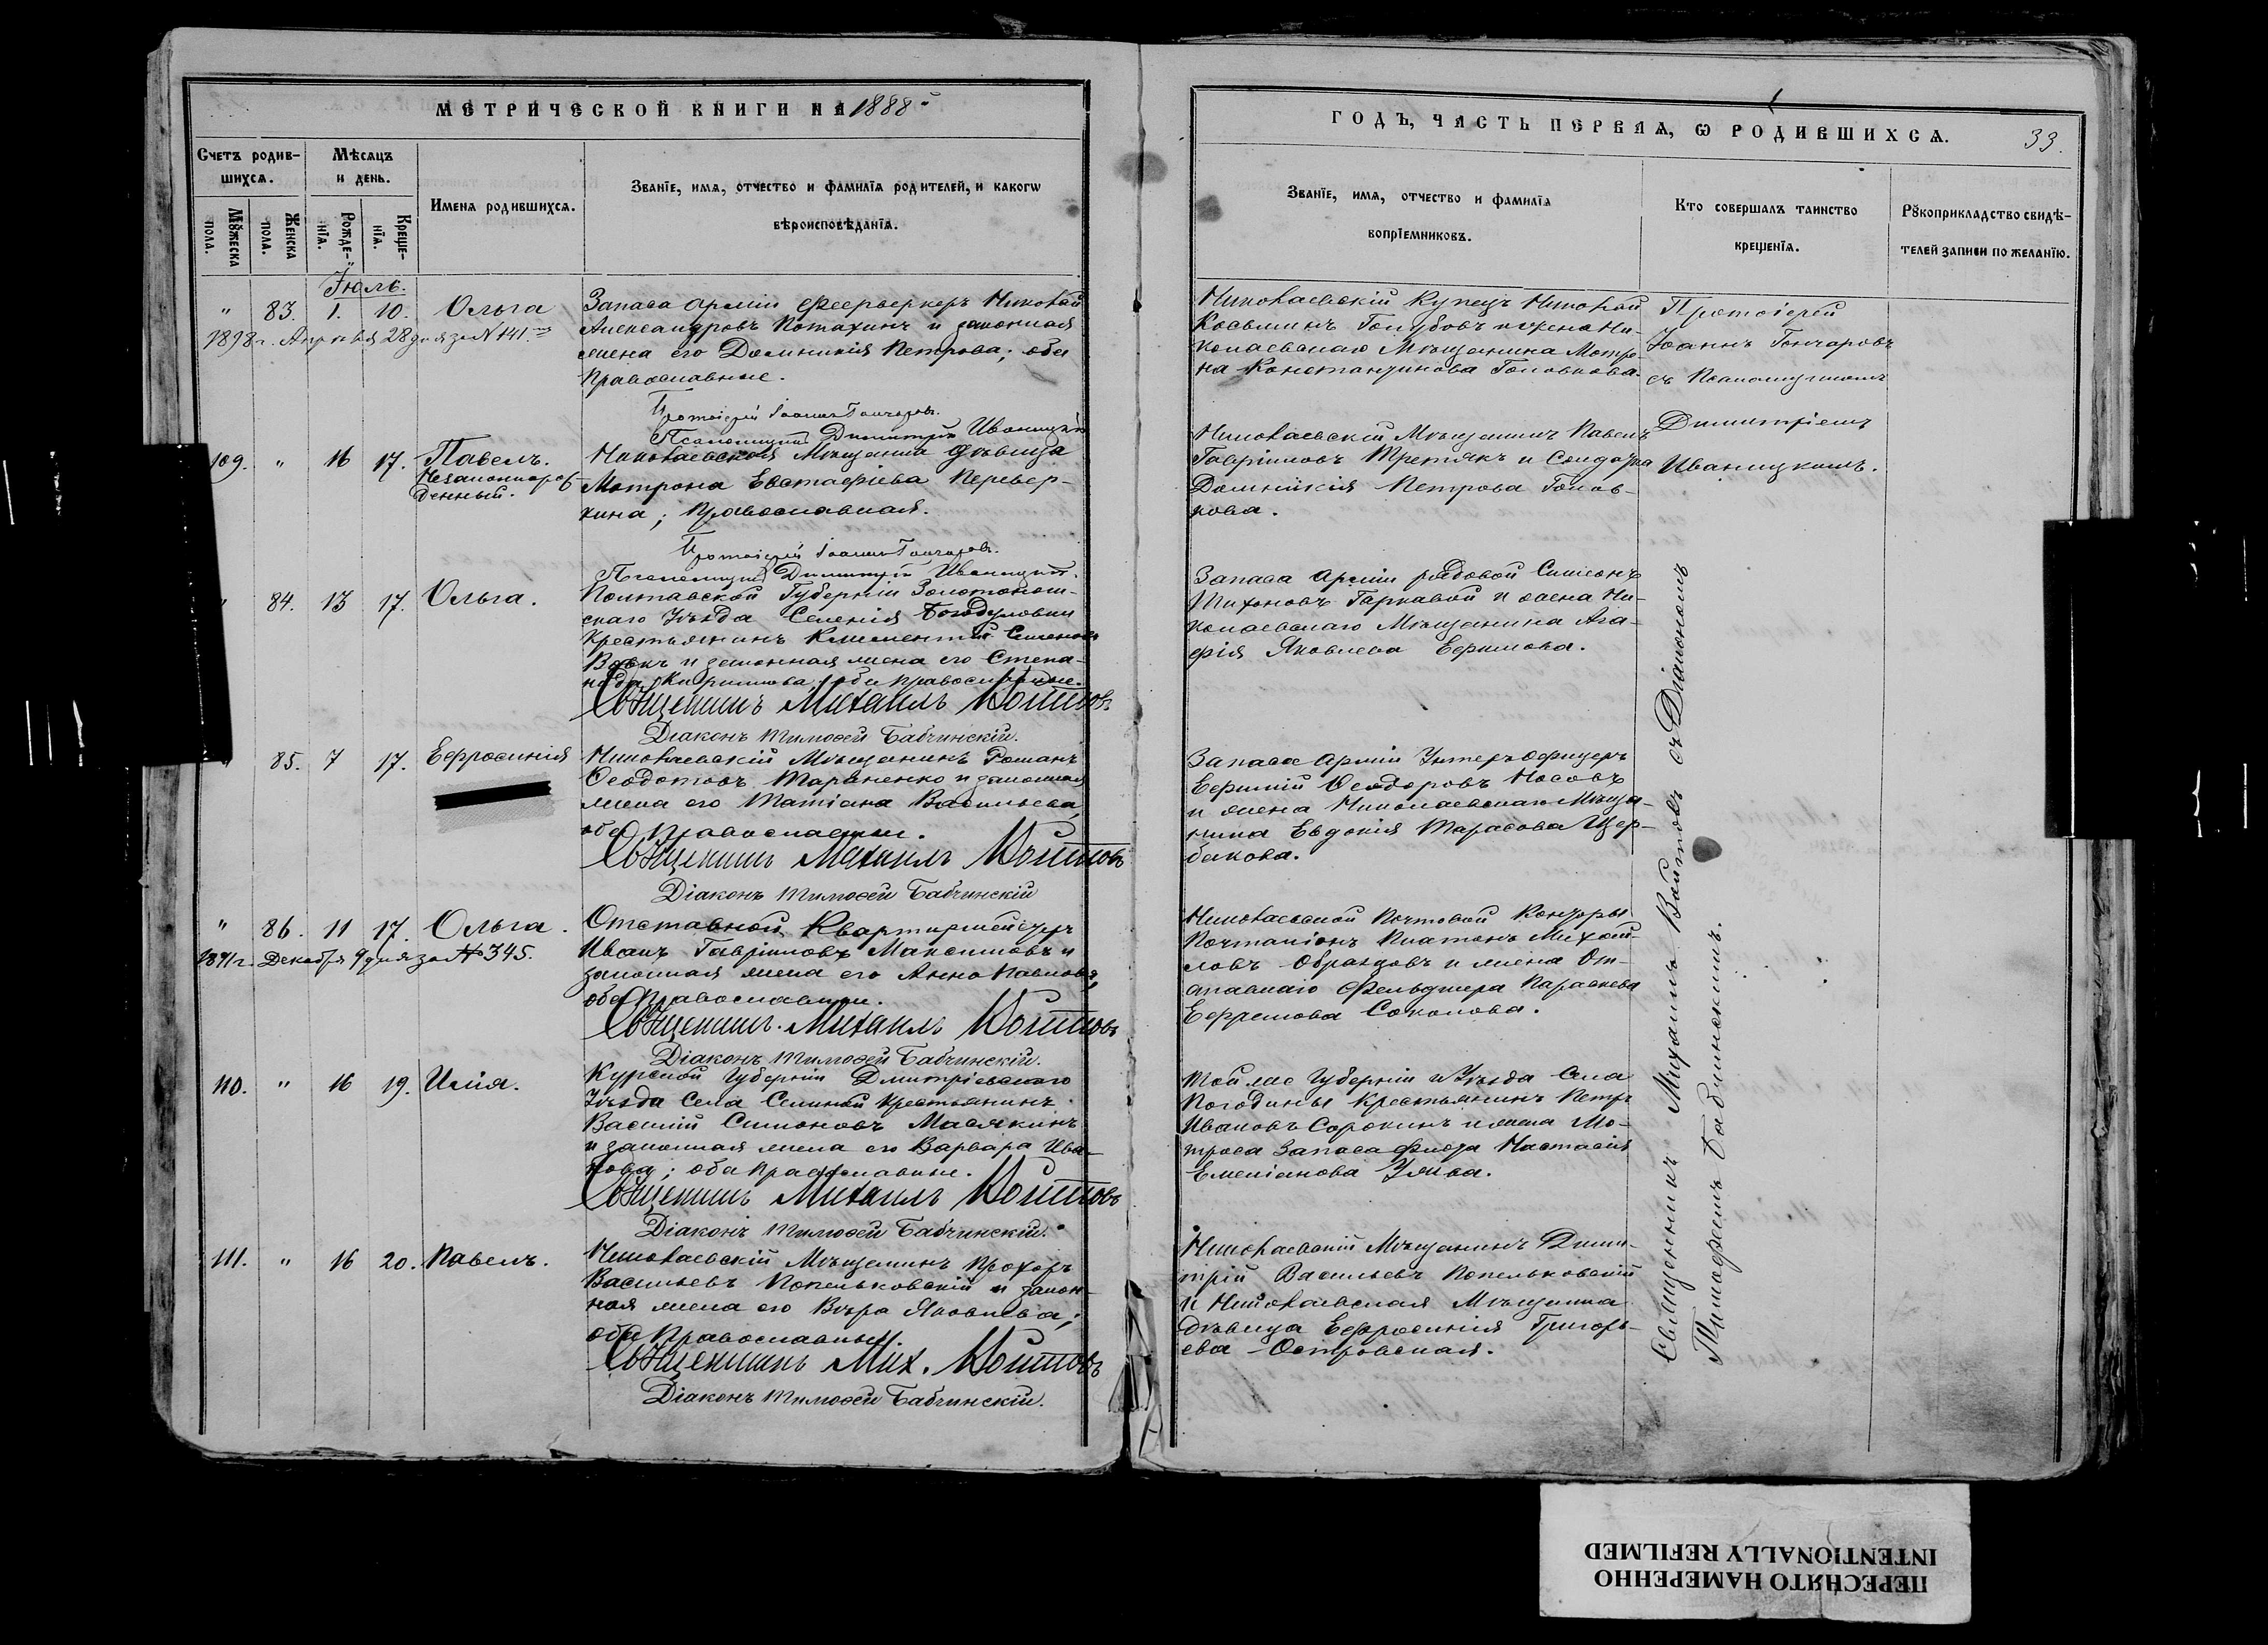 МЕТРИЧЕСКОЙ КНИГИ НА 1888й
Счетъ родив-
шихся.
Мѣсяцъ
и день.
Имена родившихся.
Званіе, имя, отчество и фамилія родителей, и какогѡ
вѣроисповѣданія.
Мꙋжеска
пола.
Женска
пола.
Рожде-
нія.
Креще-
нія.
Іюль.
" 83. 1. 10. Ольга
1898 г. Апрѣля 28 дня за № 141.
Запаса арміи фейерверкеръ Николай
Александровъ Потахинъ и законная
жена его Домникія Петрова; оба
православные.
Протоіерей Іоаннъ Гончаровъ.
Псаломщикъ Димитрій Иваницкій
109. " 16 17. Павелъ.
Незаконнорож-
денный.
Николаевская Мѣщанка дѣвица
Матрона Евстафіева Перевер-
кина; православная.
Протоіерей Іоаннъ Гончаровъ.
Псаломщикъ Димитрій Иваницкій.
" 84. 13 17. Ольга.
Полтавской Губерніи Золотонош-
скаго Уѣзда Селенія Богодуховки
Крестьянинъ Климентій Семеновъ
Вовкъ и законная жена его Степа-
нида Кириллова; оба православные.
Священникъ Михаилъ Войтовъ
Діаконъ Тимоѳей Бабчинскій.
" 85. 7 17. Ефросинія
Николаевскій Мѣщанинъ Романъ
Ѳеодотовъ Тараненко и законная
жена его Татіана Васильева,
оба православные.
Священникъ Михаилъ Войтовъ
Діаконъ Тимоѳей Бабчинскій
" 86. 11 17. Ольга.
1891 г. Декабря 9 дня за № 345.
Отставной Квартирмейстеръ
Иванъ Гавріиловъ Максимовъ и
законная жена его Анна Павлова,
оба православные.
Священникъ Михаилъ Войтовъ
Діаконъ Тимоѳей Бабчинскій.
110. " 16 19. Илія.
Курской Губерніи Дмитріевскаго
Уѣзда Села Крестьянинъ
Василій Симоновъ Масякинъ
и законная жена его Варвара Ива-
нова; оба православные.
Священникъ Михаилъ Войтовъ
Діаконъ Тимоѳей Бабчинскій.
111. " 16 20. Павелъ.
Николаевскій Мѣщанинъ Прохоръ
Васильевъ Попельковскій и закон-
ная жена его Вѣра Яковлева;
оба Православные.
Священникъ Мих. Войтовъ
Діаконъ Тимоѳей Бабчинскій.
ГОДЪ, ЧАСТЬ ПЕРВАЯ, Ѡ РОДИВШИХСЯ.
33.
Званіе, имя, отчество и фамилія
вопріемниковъ.
Кто совершалъ таинство
крещенія.
Рꙋкоприкладство свидѣ-
телей записи по желанію.
Николаевскій Купецъ Николай
Косьминъ Голубовъ и жена Ни-
колаевскаго Мѣщанина Матро-
на Константинова Головкова.
Николаевскій Мѣщанинъ Павелъ
Гавріиловъ Третякъ и Солдатка
Домникія Петрова Голов-
кова.
Запаса арміи рядовой Симеонъ
Тихоновъ Гаркавой и жена Ни-
колаевскаго Мѣщанина Ага-
фія Яковлева Ефимова.
Запаса арміи Унтеръ офицеръ
Ефимій Ѳеодоровъ Носовъ
и жена Николаевскаго Мѣща-
нина Евдокія Тарасова Щер-
бакова.
Николаевской Почтовой Конторы
Почталіонъ Платонъ Михай-
ловъ Образцовъ и жена От-
ставнаго Фельдшера Параскева
Ефремова Соколова.
Той же Губерніи и Уѣзда Села
Погодины Крестьянинъ Петръ
Ивановъ Сорокинъ и жена Ма-
троса Запаса Флота Настасія
Емеліанова
Николаевскій Мѣщанинъ Дими-
трій Васильевъ Попельковскій
и Николаевская Мѣщанка
дѣвица Ефросинія Григорь-
ева Островская.
Протоіерей
Іоаннъ Гончаровъ
съ Псаломщикомъ
Димитріемъ
Иваницкимъ.
Священникъ Михаилъ Войтовъ съ Діакономъ
Тимоѳеемъ Бабчинскимъ.
ПЕРЕСНЯТО НАМЕРЕННО
INTENTIONALLY REFILMED